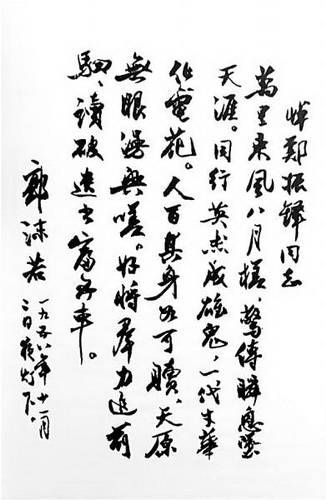 悼鄭振鐸同志
萬里乘風八月槎，驚傳瞬息墜
天涯。同行英杰成雄鬼，一代才華
化電花。人百其身如可贖，天原
無眼漫興嗟。好將羣力追前
駟，讀破遺書富五車。
郭沫若
一九五八年十一月
二日夜灯下。